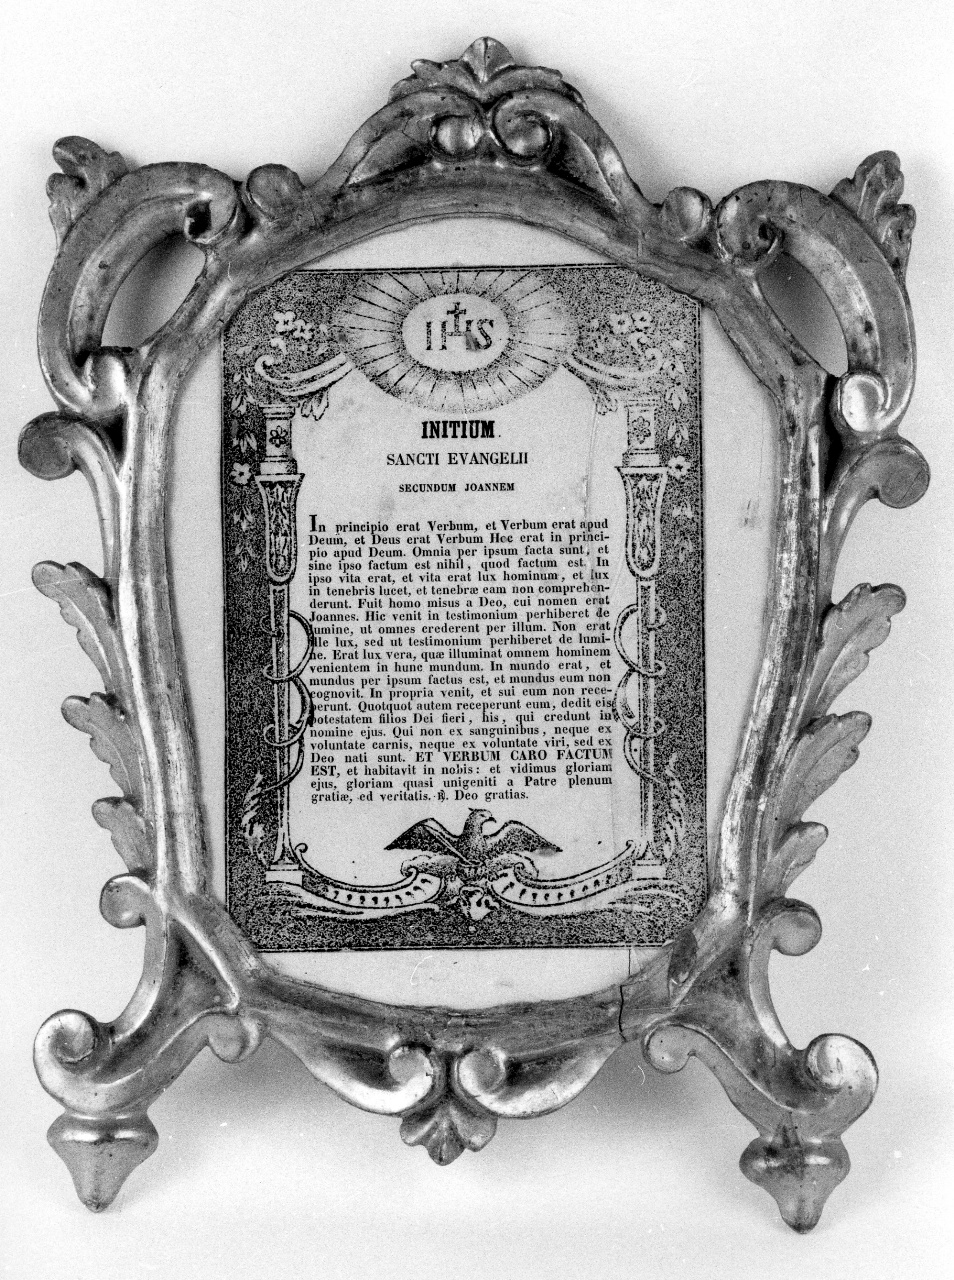 IHS
INITIUM.
SANCTI EVANGELII
SECUNDUM JOANNEM
In principio erat Verbum, et Verbum erat apud
Deum, et Deus erat Verbum Hoc erat in princi-
pio apud Deum. Omnia per ipsum facta sunt, et
sine ipso factum est nihil, quod factum est. In
ipso vita erat, et vita erat lux hominum, et lux
in tenebris lucet, et tenebræ eam non comprehen-
derunt. Fuit homo misus a Deo, cui nomen erat
Joannes. Hic venit in testimonium perhiberet de
lumine, ut omnes crederent per illum. Non erat
ille lux, sed ut testimonium perhiberet de lumi-
ne. Erat lux vera, quæ illuminat omnem hominem
venientem in hunc mundum. In mundo erat, et
mundus per ipsum factus est, et mundus eum non
cognovit. In propria venit, et sui eum non rece-
perunt. Quotquot autem receperunt eum, dedit eis
potestatem filios Dei fieri, his, qui credunt in
nomine ejus. Qui non ex sanguinibus, neque ex
voluntate carnis, neque ex voluntate viri, sed ex
Deo nati sunt. ET VERBUM CARO FACTUM
EST, et habitavit in nobis: et vidimus gloriam
ejus, gloriam quasi unigeniti a Patre plenum
gratiæ, ed veritatis. ℟. Deo gratias.